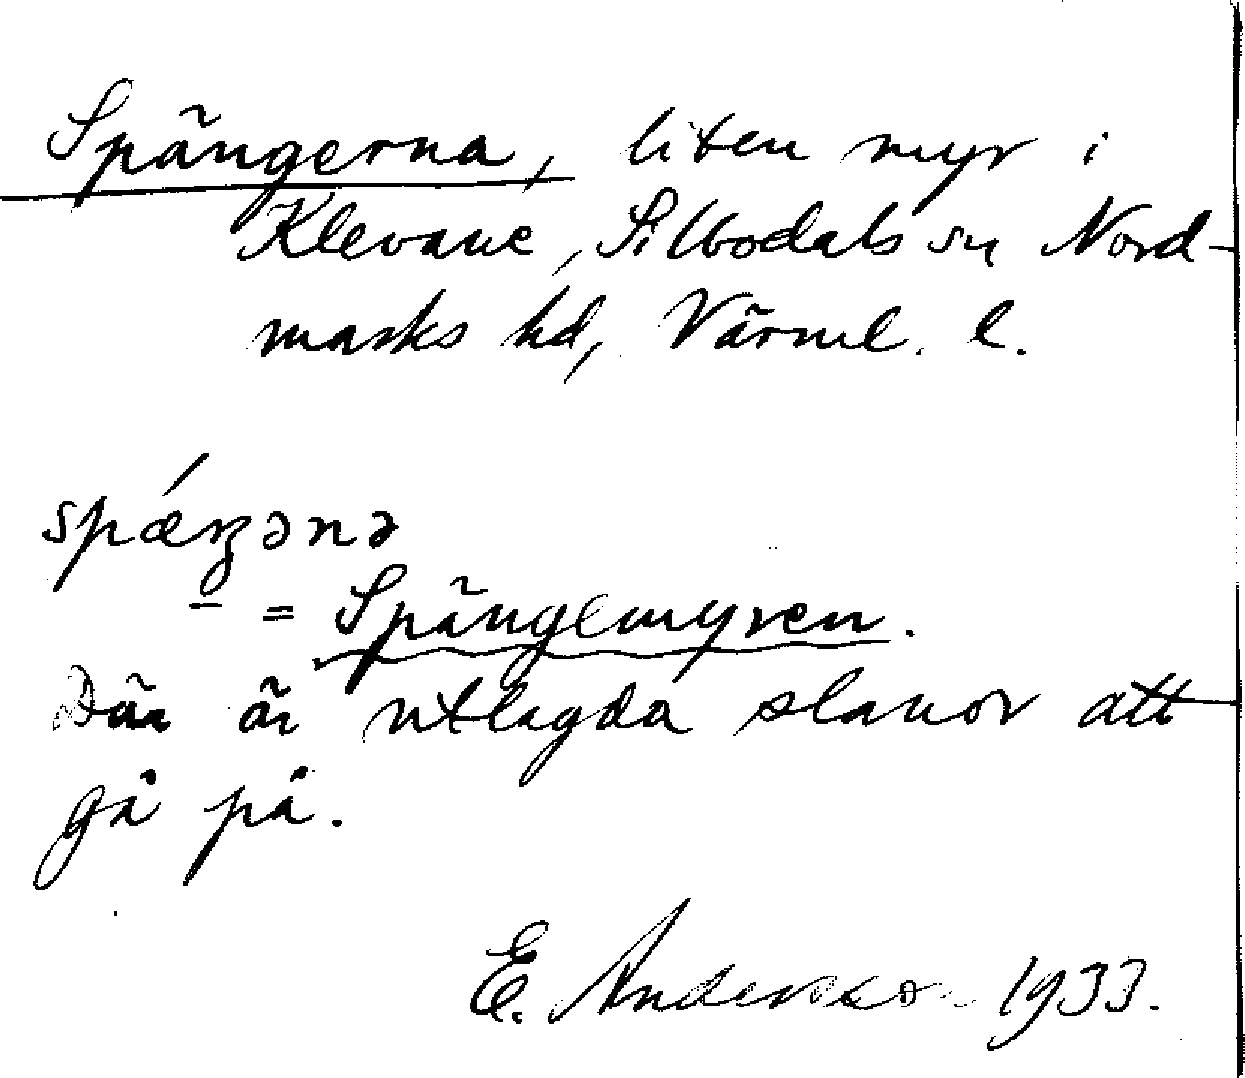 Spängerna, liten myr i
Klevane, Silbodals sn Nord-
marks hd, Värml. l.
= Spängemyren.
Där är utlagda slanor att
gå på.
E. Andersson 1933.